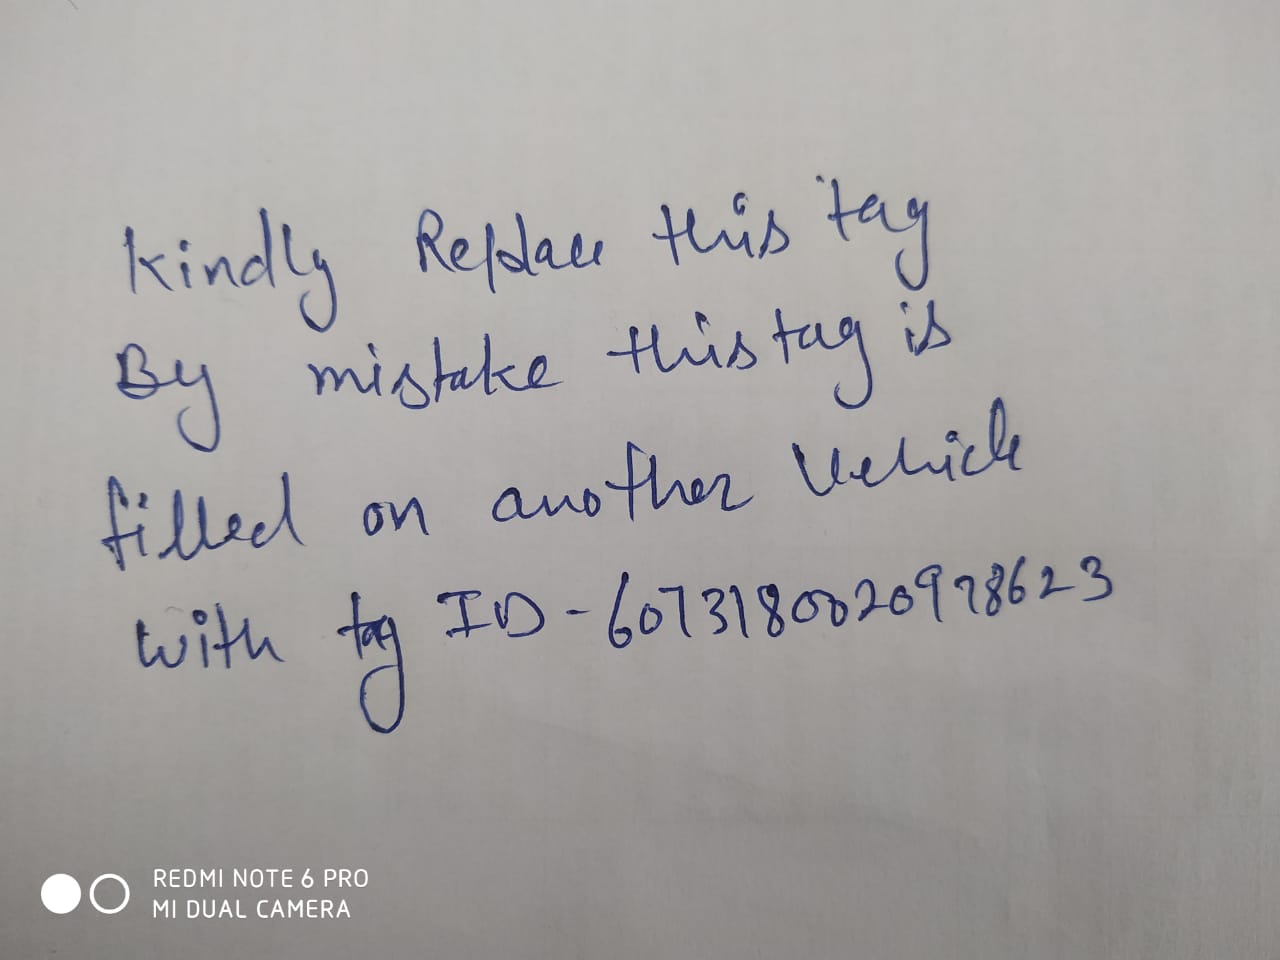 Kindly Replace this tag
By mistake this tag is
filled on another Vehicle
with tag ID - 6073180020978623
REDMI NOTE 6 PRO
MI DUAL CAMERA